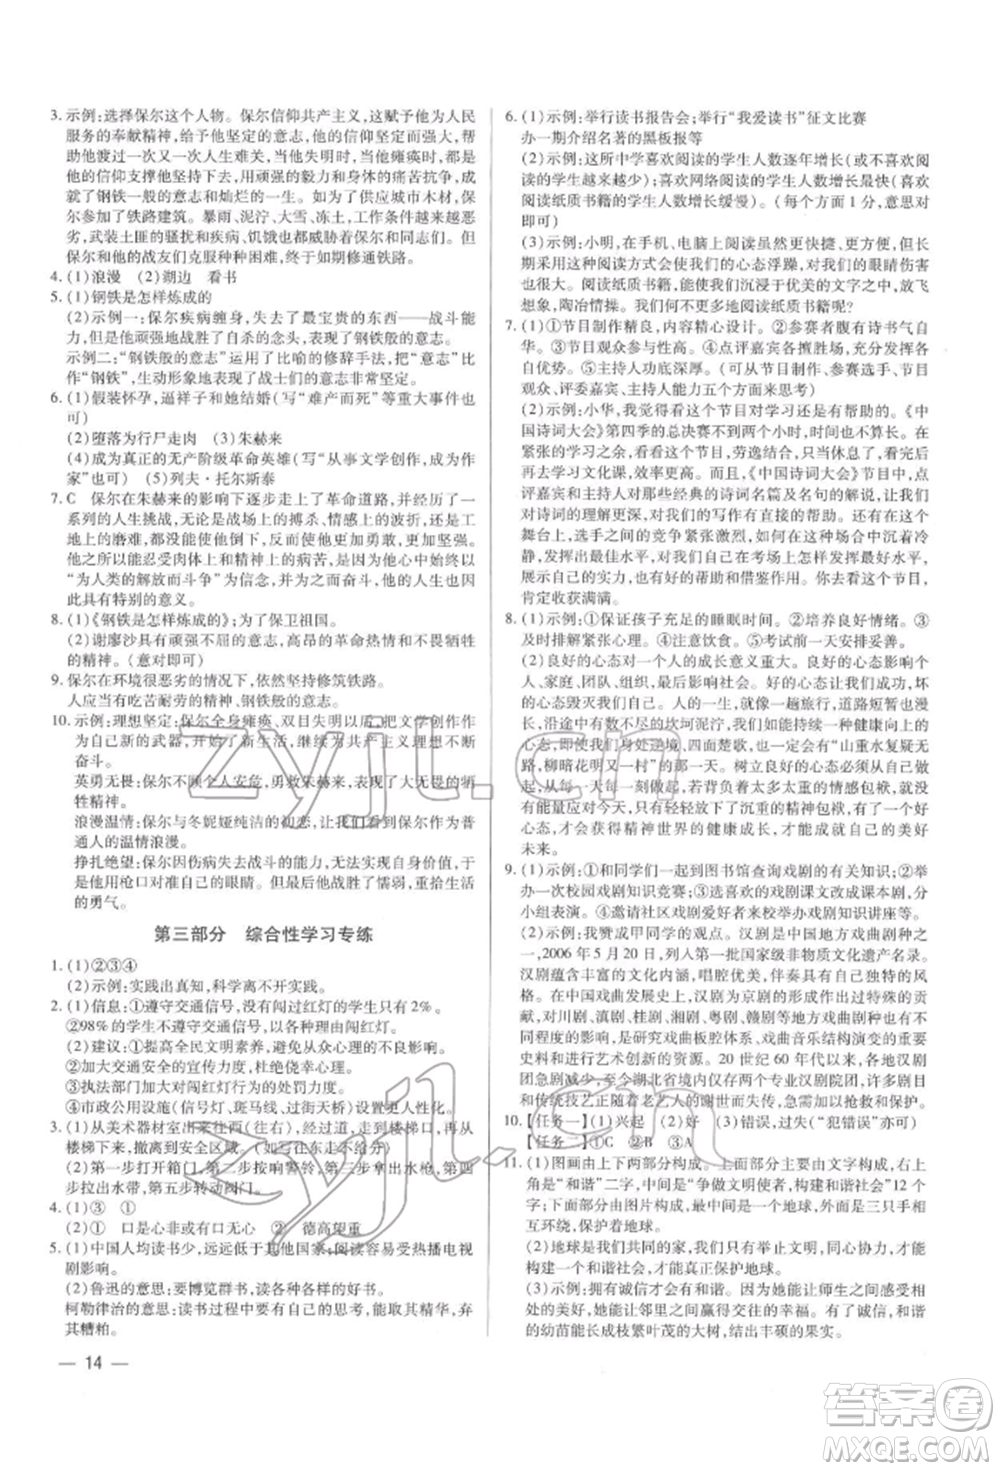 3. 示例:选择保尔这个人物。保尔信仰共产主义,这赋予他为人民
服务的奉献精神,给予他坚定的意志,他的信仰坚定而强大,帮
助他闯过一次又一次人生难关,当他失明时,当他瘫痪时,坚定
的信仰支撑他走下去,顽强的毅力和坚强的意志与身体抗争,成
就了钢铁一般的意志和灿烂的人生。为了供应城市木材,保
尔参加了铁路建筑。暴雨、泥泞、大雪、冻土,工作条件越来越恶
劣,武装土匪的骚扰和疾病、饥饿也都威胁着大家的生命。但
保尔和他的战友们克服种种困难,终于如期修通铁路。
4. (1)浪漫 (2)湖边 看书
5. (1)钢铁是怎样炼成的
(2)示例一:保尔疾病缠身,失去了最宝贵的东西——战斗能
力,于是他产生了自杀的念头,但最终战胜了自己。
示例二:“钢铁般的意志”运用了比喻的修辞手法,把“意志”比作
“钢铁”,生动形象地表现了战士们的意志非常坚定。
6. (1)假装怀孕,逼祥子和她结婚(写“难产而死”等其他情节亦
可)
(2)堕落为行尸走肉 (3)朱赫来
(4)成为真正的无产阶级革命英雄(写“从事文学创作,成为作
家”也可) (5)列夫·托尔斯泰
7. C 保尔在朱赫来的影响下逐步走上了革命道路,并经历了一
系列的人生挑战,无论是战场上的厮杀、情感上的波折,还是工
地上的磨难,都没有使他屈倒下,反而使他更加勇敢、更加坚强。
他之所以能忍受肉体上和精神上的病苦,是因为他心中始终以
“为人类的解放而斗争”为信念,并为之奋斗、献身,他的人生也因
此具有特别的意义。
8. (1)《钢铁是怎样炼成的》;为了保卫祖国。
(2)谢廖沙具有顽强不屈的意志,高昂的革命热情和勇于牺牲
的精神。(意对即可)
9. 保尔在环境很恶劣的情况下,依然坚持修筑铁路。
人应当有吃苦耐劳的精神、钢铁般的意志。
10. 示例:理想坚定:保尔全身瘫痪、双目失明以后,把文学创作作
为自己新的武器,开始了新生活,继续为共产主义理想而不断
奋斗。
英勇无畏:保尔不顾个人安危,勇救朱赫来,表现了他英勇的牺
牲精神。
浪漫温情:保尔与冬妮娅纯洁的初恋,让人感受到了他作为普
通人的温情浪漫。
挣扎绝望:保尔因伤病失去战斗的能力,无法实现自身价值,
他曾用枪口对准自己的眼睛。但他最终战胜了懦弱,重拾生活
的勇气。
第三部分 综合性学习专练
1. (1)②③④
(2)示例:实践出真知,科学离不开实践。
2. (1)信息:①遵守交通信号,没有闯过红灯的学生只有2%。
②98%的学生不遵守交通信号,有闯红灯的现象。
(2)建议:①提高全民文明素养,认识闯红灯的不良影响。
②加大交通安全的宣传力度,杜绝侥幸心理。
③执法部门加大对闯红灯行为的处罚力度。
④市政公用设施(信号灯、斑马线、过街天桥)设置更人性化。
3. (1)从美术器材室出来往西(往右),经过过道,走向楼梯口,再从
楼梯下来,撤离到安全区域。(往东走不给分)
(2)第一步打开箱门,第二步按响警铃,第三步拉出水枪,第四
步拉出水带,第五步转动阀门。
4. (1)③ ①
(2)① 口是心非或有口无心 ② 德高望重
5. (1)中国人均读书少,远远低于其他国家;阅读容易受热播电视
剧影响。
(2)鲁迅的意思:要博览群书,读各种各样的好书。
柯勒律治的意思:读书过程中要有自己的思考,取其精华,弃
其糟粕。
6. (1)示例:举行读书报告会;举行“我爱读书”征文比赛
办一期介绍名著的黑板报等
(2)示例:这所中学喜欢阅读的学生人数逐年增长(或学生
越来越少);喜欢网络阅读的学生人数增长迅速(喜欢
阅读纸质书籍的学生人数增长缓慢)。(每个方面1分,意思对
即可)
(3)示例:小明,在手机、电脑上阅读虽然更快捷、更方便,但
长期采用这种阅读方式会导致我们的心态浮躁,对我们的眼睛伤害很
大。阅读纸质书籍,能使我们沉浸于优美的文字之中,放飞
想象,陶冶情操。我们何不更多地阅读纸质书籍呢?
7. (1)①节目制作精良,内容精心设计。②参赛者腹有诗书气自
华。③节目观众参与性强。④点评嘉宾各擅胜场,充分发挥各
自优势。⑤主持人功底深厚。(可从节目制作、参赛者、节目
观众、评委嘉宾、主持人能力五个方面来思考)
(2)示例:小华,我觉得看这个节目对学习还是有帮助的。《中
国诗词大会》第四季的总决赛不到两个小时,时间也不算长。在
紧张的学习之余,看看有益的节目,劳逸结合,放松身心,然后
再去学习文化课,效率更高。《中国诗词大会》这档节目中,点
评嘉宾和主持人对那些经典的诗词名篇及名句的解读,有助于我们
对诗词的理解更深,对我们的写作有直接的帮助。在这个
舞台上,选手之间的竞争紧张激烈,如何在这种场合中沉着冷
静,发挥出最佳水平,对我们自己在考场上怎样发挥水平,
展示自己的实力,也有好的帮助和借鉴作用。看这个节目,
肯定收获满满。
8. (1)示例:①保证孩子充足的睡眠时间。②培养良好情绪。③
及时排解紧张心理。④注意饮食。⑤考试前一天安排妥善。
(2)良好的心态对一个人的成长意义重大。良好的心态影响个人、
家庭、团队、组织。好的心态让你成功,坏的心态毁灭
你自己。所以我们要有一个良好的心态。人的一生,道路短暂也漫
长,沿途中有数不尽的坎坷泥泞,但只要拥有一种健康向上的
心态,即使我们身处逆境,四面楚歌,也一定会有“山重水复疑无
路,柳暗花明又一村”的那一天。或许,我们无法改变人生,但
人生的每一天每一刻都在做着选择。若背着沉重的精神包袱,就没
有能量应付变化,只有轻轻放下了沉重的精神包袱,有一个好
心态,才会获得精神世界的健康成长,才能拥有更加美好的
未来。
9. (1)示例:①和同学们一起到图书馆查询戏剧的相关知识;②
举办一次校园戏剧知识竞赛;③选喜欢的戏剧课文改成课本剧,分
小组表演。④邀请社区戏剧爱好者来校举办戏剧知识讲座等。
(2)示例:我赞成甲同学的观点。汉剧是中国地方戏曲剧种之
一,2006年5月20日,列入第一批国家级非物质文化遗产名录。汉
剧蕴含丰富的文化内涵,唱腔优美,伴奏具有自己独特的体系,
在中国戏曲发展史上,汉剧对京剧的形成作出过特殊的贡
献,对川剧、滇剧、桂剧、湘剧、粤剧等地方戏曲剧种产生了重要
的影响,是研究戏曲声腔、戏曲音乐结构演变的重要
史料和进行艺术创新的资源。20世纪60年代以来,各地汉剧
团急剧减少,至今,除了湖北省境内尚有几家汉剧院团,其
和传统技艺正随着老艺人的谢世而失传,现状堪忧。
10. 【任务一】(1)兴起 (2)好 (3)错误,过失(“犯错误”亦可)
【任务二】①DC ②B ③A
11. (1)图画由上下两部分构成。上面部分由文字构成,有“和
谐”二字,中间是“争做文明使者、构建和谐社会”12个
字;下面部分由图片构成,主要内容是一只手与另一只手相
互环绕,共同支撑着地球。
(2)地球是我们共同的家园,我们只有举止文明,和谐相处,才能
构建和谐社会,才能真正保护地球。
(3)示例:拥有诚信才会有和谐。诚信,她能让师生之间
和谐相处,她能让邻里之间赢得交往的幸福。有了诚信,和谐
的幼苗能长成枝繁叶茂的大树,结出丰硕的果实。
— 14 —
zyjl.cn
zyjl.cn
答案圈
MXQE.COM